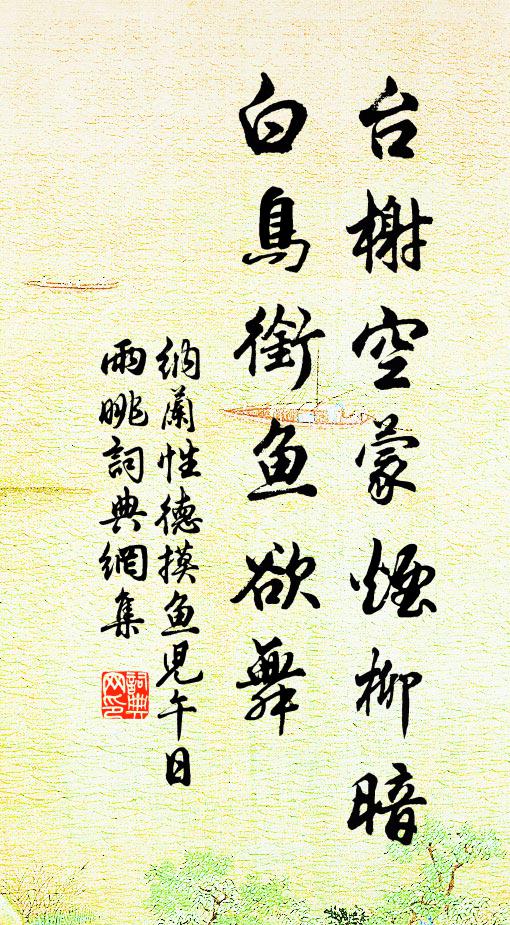 台榭空蒙煙柳暗
白鳥銜魚欲舞
納蘭性德摸魚児午日
雨眺詞典網集
詞典
网印